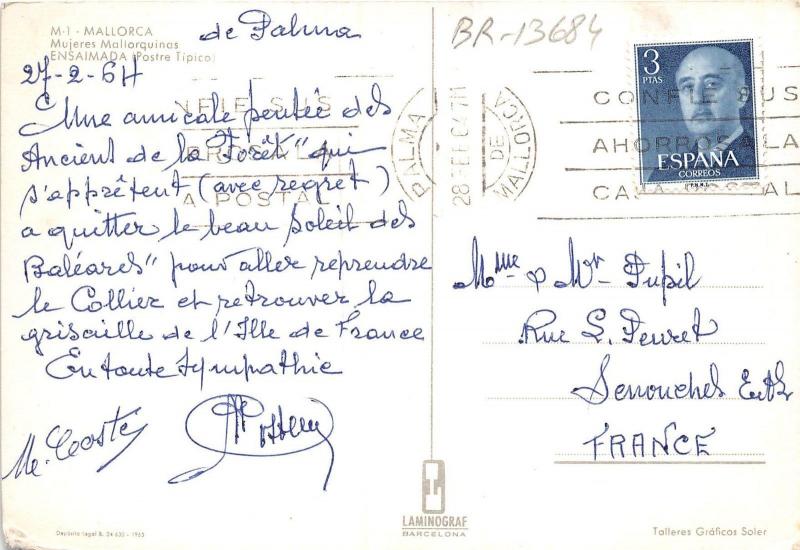 M-1 - MALLORCA
Mujeres Mallorquinas
ENSAIMADA (Postre Típico)
de Palma
27-2-64
Une amicale pensée des
Ancient de la "Forêt" qui
s'apprêtent (avec regret)
a quitter le beau Soleil des
Baléares" pour aller reprendre
le Collier et retrouver la
grisaille de l'Ille de France
En toute sympathie
BR-13684
3
PTAS
ESPAÑA
CORREOS
PALMA
28 FEB 64
DE
MALLORCA
CONFIE SUS
AHORROS A LA
CAJA POSTAL
Mme & Mr Pupil
Rue L.
Senonches E et L
FRANCE
LAMINOGRAF
BARCELONA
Depósito legal B. 24 635 - 1963
Talleres Gráficos Soler